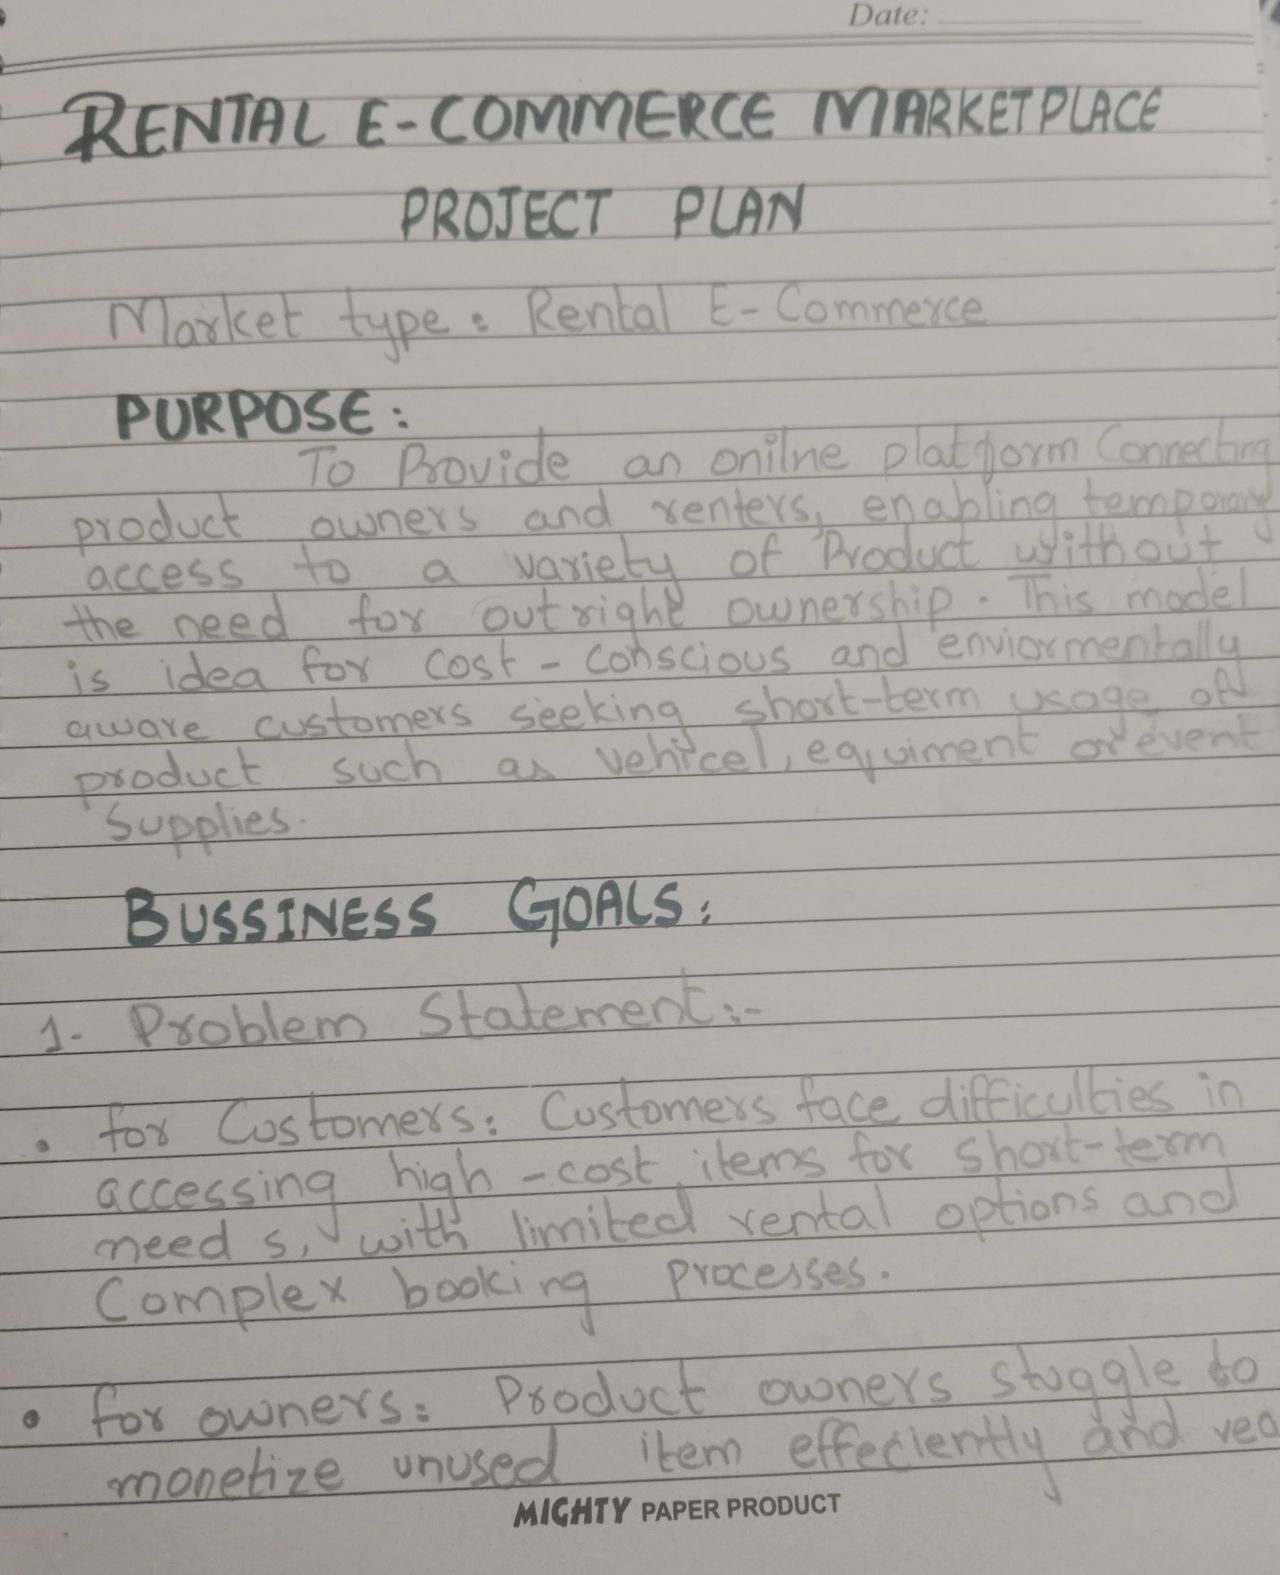 Date:
RENTAL E-COMMERCE MARKETPLACE
PROJECT PLAN
Market type: Rental E-Commerce
PURPOSE:
To Provide an onilne platform Connecting
product owners and renters, enabling temporary
access to a variety of Product without
the need for outright ownership. This model
is idea for cost-conscious and enviormentally
aware customers seeking short-term usage of
product such as vehicel, equiment or event
Supplies.
BUSSINESS GOALS:
1- Problem Statement:-
• for Costomers: Customers face difficulties in
accessing high-cost items for short-term
need s, with limited rental options and
Complex booking processes.
• for owners: Product owners stuggle to
monetize unused item effeciently and rea
MIGHTY PAPER PRODUCT